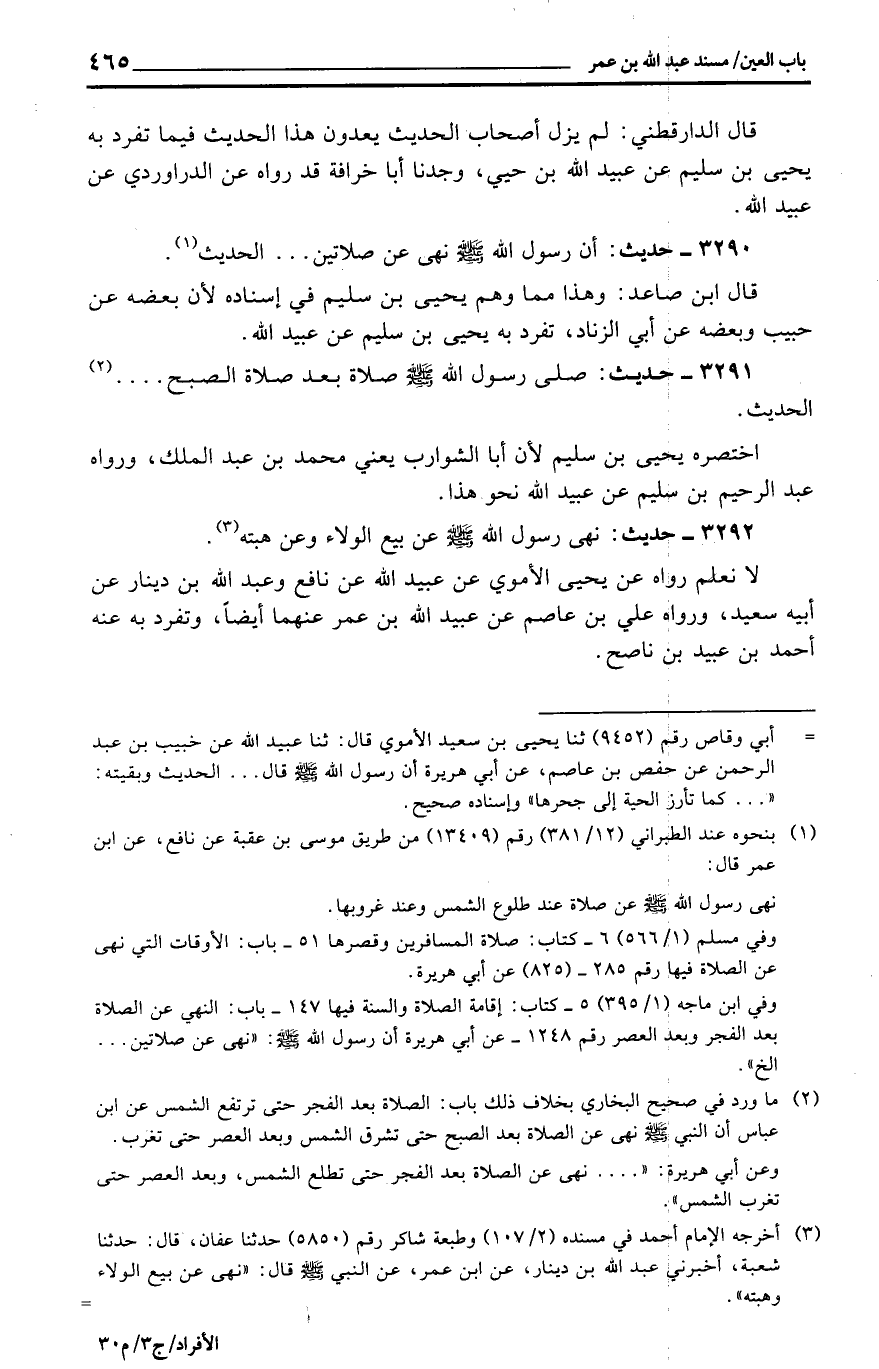 باب العين/ مسند عبد الله بن عمر ٤٦٥
قال الدارقطني: لم يزل أصحاب الحديث يعدون هذا الحديث فيما تفرد به
يحيى بن سليم عن عبيد الله بن حيي، وجدنا أبا خرافة قد رواه عن الدراوردي عن
عبيد الله.
٣٢٩٠ ـ حديث: أن رسول الله ﷺ نهى عن صلاتين... الحديث(١).
قال ابن صاعد: وهذا مما وهم يحيى بن سليم في إسناده لأن بعضه عن
حبيب وبعضه عن أبي الزناد، تفرد به يحيى بن سليم عن عبيد الله.
٣٢٩١ ـ حديث: صلى رسول الله ﷺ صلاة بعد صلاة الصبح....(٢)
الحديث.
اختصره يحيى بن سليم لأن أبا الشوارب يعني محمد بن عبد الملك، ورواه
عبد الرحيم بن سليم عن عبيد الله نحو هذا.
٣٢٩٢ ـ حديث: نهى رسول الله ﷺ عن بيع الولاء وعن هبته(٣).
لا نعلم رواه عن يحيى الأموي عن عبيد الله عن نافع وعبد الله بن دينار عن
أبيه سعيد، ورواه علي بن عاصم عن عبيد الله بن عمر عنهما أيضاً، وتفرد به عنه
أحمد بن عبيد بن ناصح.
= أبي وقاص رقم (٩٤٥٢) ثنا يحيى بن سعيد الأموي قال: ثنا عبيد الله عن خبيب بن عبد
الرحمن عن حفص بن عاصم، عن أبي هريرة أن رسول الله ﷺ قال... الحديث وبقيته:
«... كما تأرز الحية إلى جحرها» وإسناده صحيح.
(١) بنحوه عند الطبراني (١٢/ ٣٨١) رقم (١٣٤٠٩) من طريق موسى بن عقبة عن نافع، عن ابن
عمر قال:
نهى رسول الله ﷺ عن صلاة عند طلوع الشمس وعند غروبها.
وفي مسلم (١/ ٥٦٦) ٦ ـ كتاب: صلاة المسافرين وقصرها ٥١ ـ باب: الأوقات التي نهى
عن الصلاة فيها رقم ٢٨٥ ـ (٨٢٥) عن أبي هريرة.
وفي ابن ماجه (١/ ٣٩٥) ٥ ـ كتاب: إقامة الصلاة والسنة فيها ١٤٧ ـ باب: النهي عن الصلاة
بعد الفجر وبعد العصر رقم ١٢٤٨ ـ عن أبي هريرة أن رسول الله ﷺ: «نهى عن صلاتين...
الخ».
(٢) ما ورد في صحيح البخاري بخلاف ذلك باب: الصلاة بعد الفجر حتى ترتفع الشمس عن ابن
عباس أن النبي ﷺ نهى عن الصلاة بعد الصبح حتى تشرق الشمس وبعد العصر حتى تغرب.
وعن أبي هريرة: «.... نهى عن الصلاة بعد الفجر حتى تطلع الشمس، وبعد العصر حتى
تغرب الشمس».
(٣) أخرجه الإمام أحمد في مسنده (٢/ ١٠٧) وطبعة شاكر رقم (٥٨٥٠) حدثنا عفان، قال: حدثنا
شعبة، أخبرني عبد الله بن دينار، عن ابن عمر، عن النبي ﷺ قال: «نهى عن بيع الولاء
وهبته». =
الأفراد/ ج٣/ م٣٠